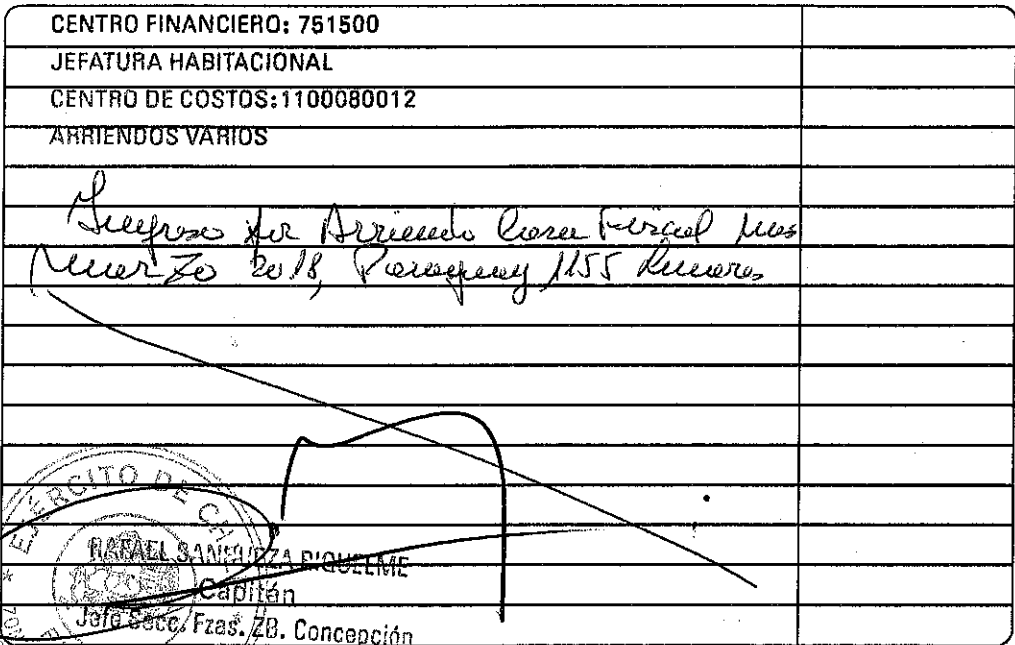 CENTRO FINANCIERO: 751500
JEFATURA HABITACIONAL
CENTRO DE COSTOS:1100080012
ARRIENDOS VARIOS
Ingreso por Arriendo Casa Fiscal mes
Marzo 2018, Paraguay 1155 Linares
EJÉRCITO DE CH
RAFAEL SANHUEZA RIQUELME
Capitán
Jefe Secc. Fzas. ZB. Concepción